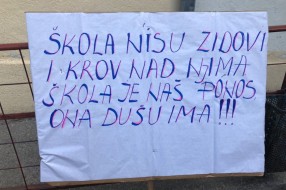 ŠKOLA NISU ZIDOVI
I KROV NAD NJIMA
ŠKOLA JE NAŠ PONOS
ONA DUŠU IMA !!!